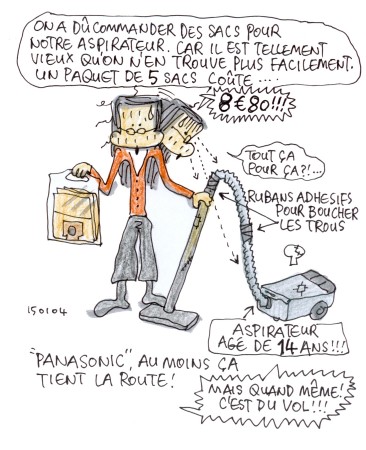 ON A DÛ COMMANDER DES SACS POUR
NOTRE ASPIRATEUR. CAR IL EST TELLEMENT
VIEUX QU'ON N'EN TROUVE PLUS FACILEMENT.
UN PAQUET DE 5 SACS COÛTE ....
8€80!!!
TOUT ÇA
POUR ÇA?!...
RUBANS ADHESIFS
POUR BOUCHER
LES TROUS
150104
ASPIRATEUR
AGÉ DE 14 ANS!!!
"PANASONIC", AU MOINS ÇA
TIENT LA ROUTE!
MAIS QUAND MÊME!
C'EST DU VOL!!!